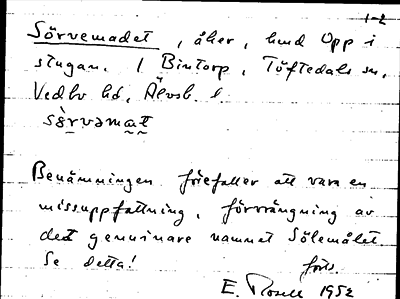 1-2
Sörvemadet, åker, hund Opp i
stugan. / Bintorp, Töftedals sn,
Vedbo hd, Älvsb. l.
sö̀rvəmat
Benämningen förefaller att vara en
missuppfattning, förvrängning av
det genuinare namnet Sölemålet.
Se detta!
forts.
E. Rosell 1952